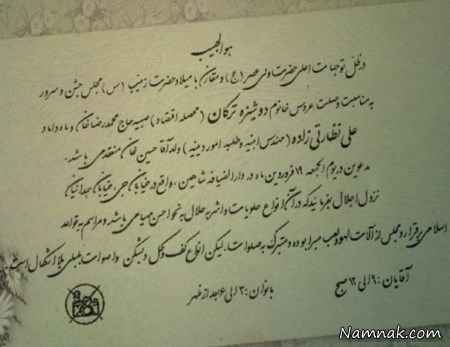 هو الحبیب
در ظل توجهات اعلی حضرت ولی عصر (عج) و مقارن با میلاد حضرت زینب (س) مجلس جشن و سرور
به مناسبت وصلت عروس خانوم دوشیزه ترکان (محصله اقتصاد) صبیه حاج محمدرضا خان و شاه داماد
علی نظارتی زاده (مهندس ابنیه و طلبه امور دینیه) ولد آقا حسین خان منعقد می باشد.
مدعوین در یوم الجمعه ۱۹ فروردین ماه در دارالضیافه شاهین، واقع در خیابان جی خیابان
نزول اجلال بفرمایند که در آن انواع حلویات و اشربه حلال به نحو احسن مهیا می باشد و مراسم به قواعد
اسلامی برقرار و مجلس از آلات لهو و لعب مبرا بوده و متبرک به صلوات، لیکن انواع کف و کل و بشکن و اصوات بلبلی بلا اشکال است.
آقایان: ۹ الی ۱۲ صبح
بانوان: ۳ الی ۶ بعد از ظهر
Namnak.com